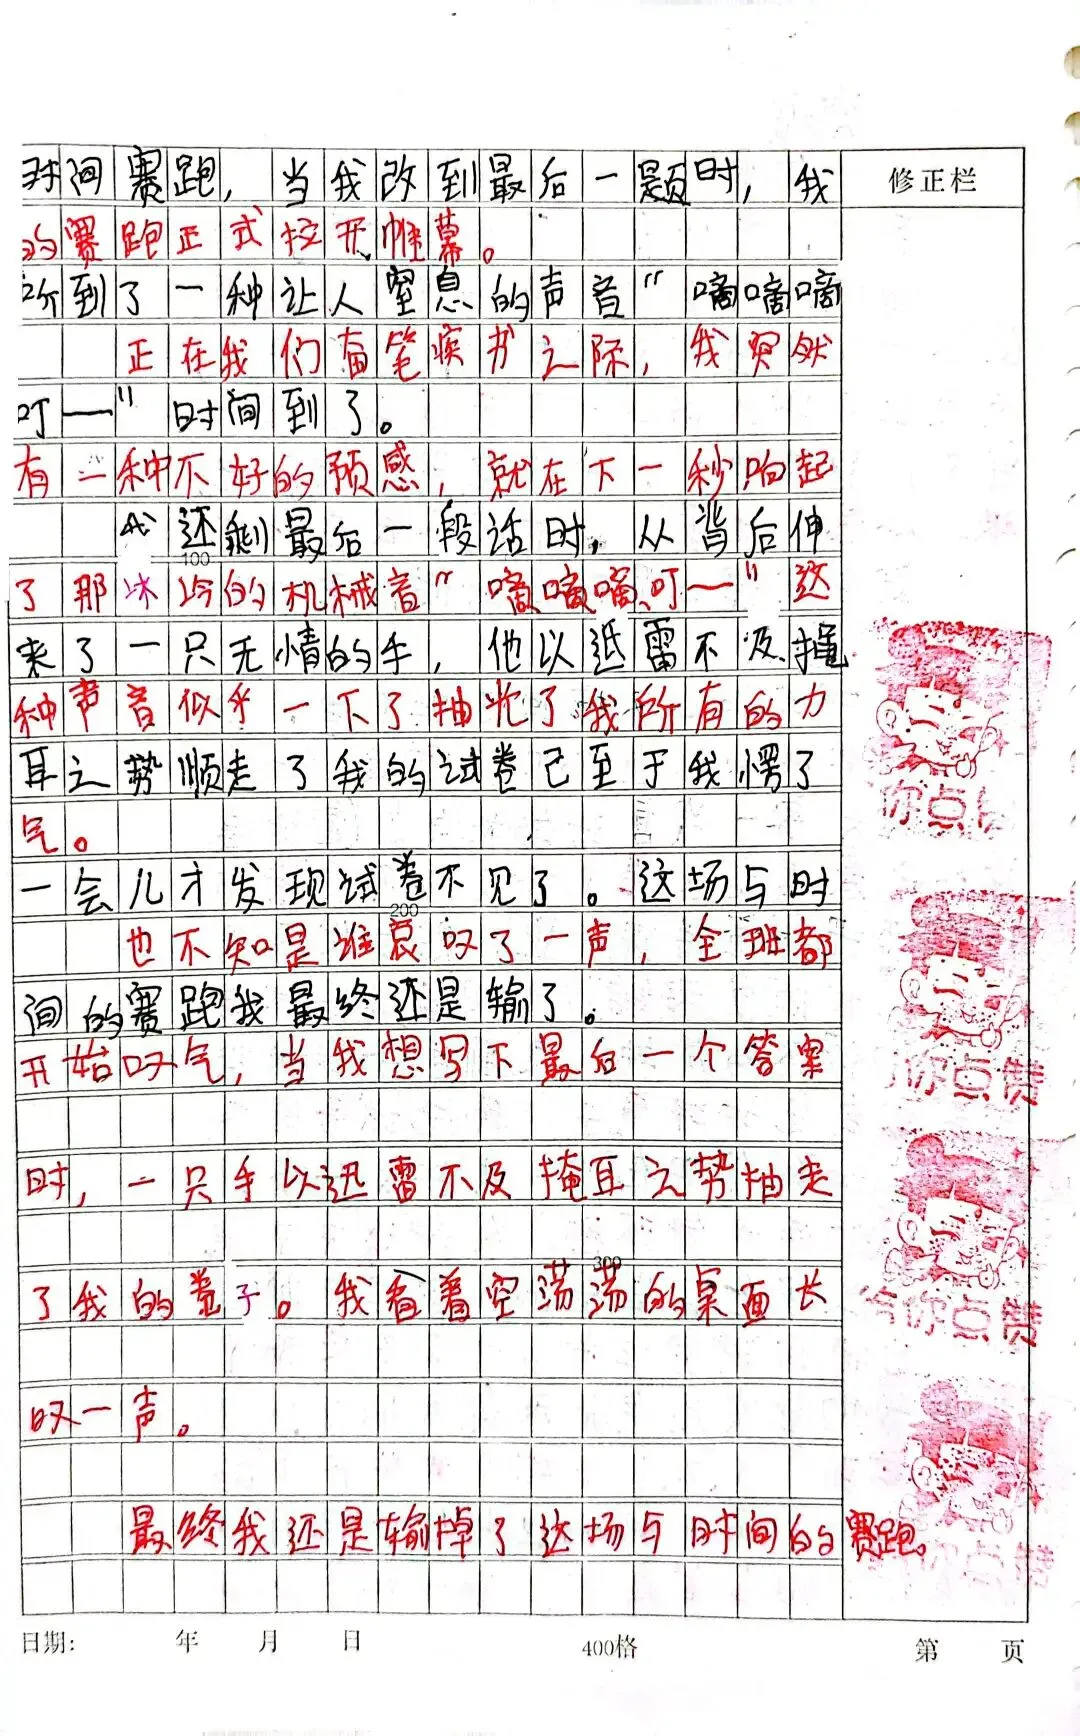 时间赛跑,当我改到最后一题时,我
修正栏
的赛跑正式拉开帷幕。
听到了一种让人窒息的声音“嘀嘀嘀
正在我们奋笔疾书之际,我突然
叮一”时间到了。
有一种不好的预感,就在下一秒响起
我还剩最后一段话时,从背后伸
100
了那冰冷的机械音“嘀嘀嘀叮一”这
来了一只无情的手,他以迅雷不及掩
种声音似乎一下了抽光了我所有的力
耳之势顺走了我的试卷己至于我愣了
你点
气。
一会儿才发现试卷不见了。这场与时
200
也不知是谁哀叹了一声,全班都
间的赛跑我最终还是输了。
开始叹气,当我想写下最后一个答案
你点赞
时,一只手以迅雷不及掩耳之势抽走
300
了我的卷子。我看着空荡荡的桌面长
你点赞
叹一声。
最终我还是输掉了这场与时间的赛跑。
你点赞
日期: 年 月 日 400格 第 页